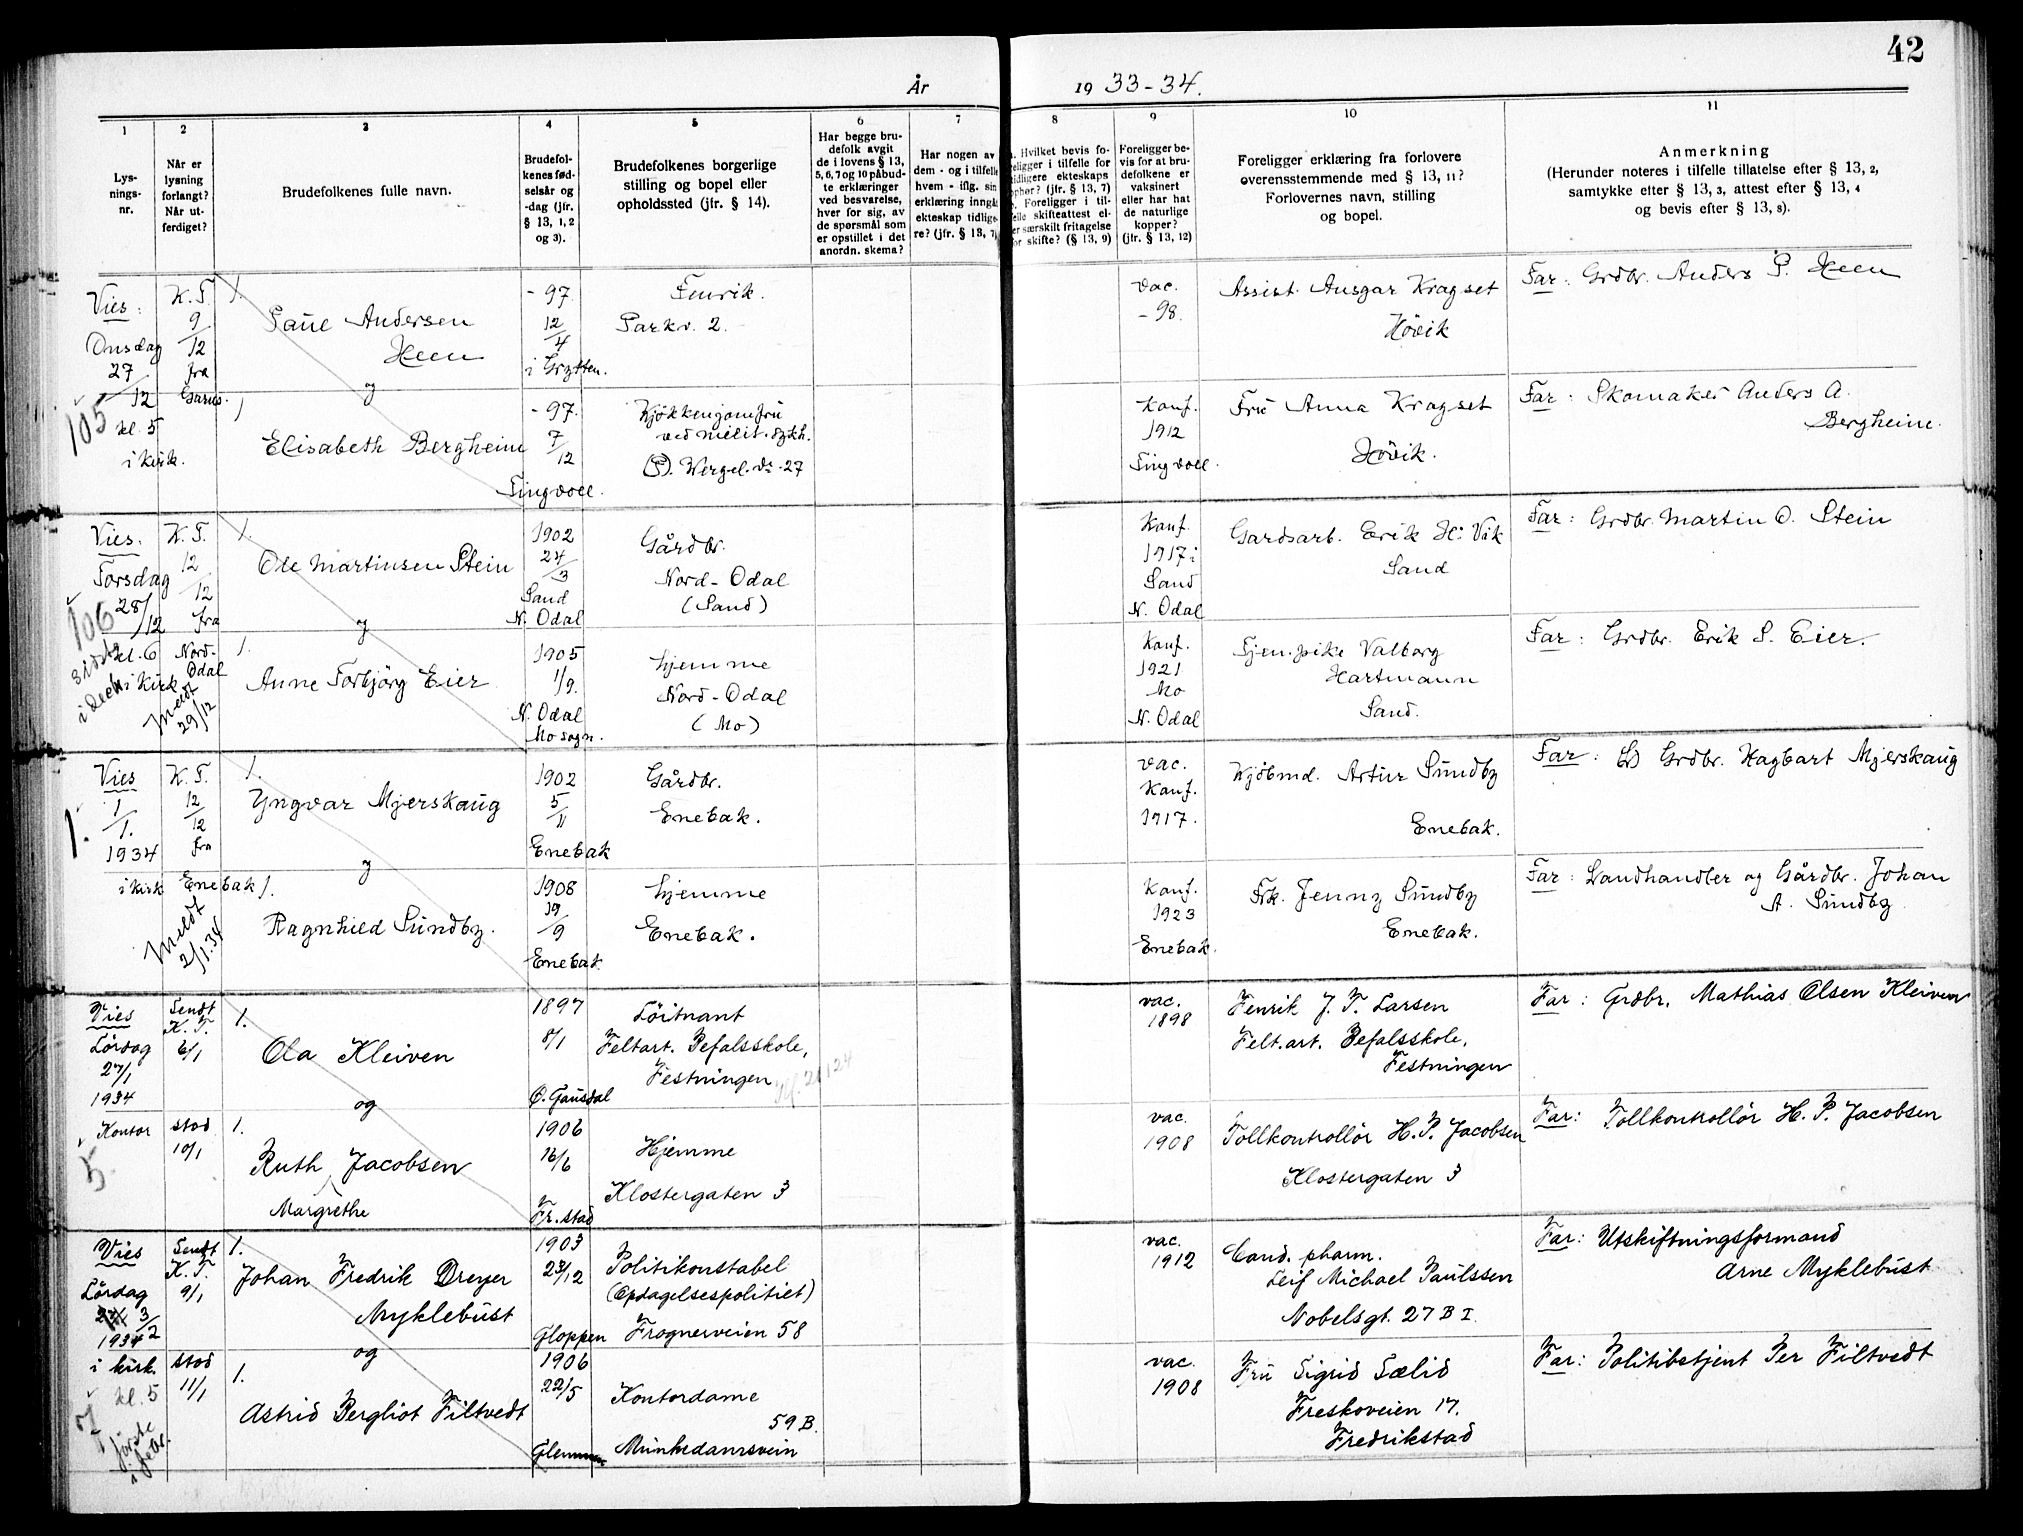 42
År 19 33-34.
1 2 3 4 5 6 7 8 9 10 11
Lys-
nings-
nr.
Når er
lysning
forlangt?
Når ut-
ferdiget?
Brudefolkenes fulle navn.
Brudefol-
kenes fød-
selsår og
-dag (jfr.
§ 13, 1, 2
og 3).
Brudefolkenes borgerlige
stilling og bopel eller
opholdssted (jfr. § 14).
Har begge bru-
defolk avgit
de i lovens § 13,
5, 6, 7 og 10 påbud-
te erklæringer
ved besvarelse,
hver for sig, av
de spørsmål som
er opstillet i det
anordn. skema?
Har nogen av
dem - og i tilfelle
hvem - iflg. sin
erklæring inngåt
ekteskap tidlige-
re? (jfr. § 13, 7)
Hvilket bevis fo-
religger i tilfelle for
tidligere ekteskaps
ophør? (jfr. § 13, 7)
Foreligger i til-
felle skifteattest el-
ler særskilt fritagelse
for skifte? (§ 13, 9)
Foreligger be-
vis for at bru-
defolkene er
vaksinert
eller har hat
de naturlige
kopper?
(jfr. § 13, 12)
Foreligger erklæring fra forlovere
overensstemmende med § 13, 11?
Forlovernes navn, stilling
og bopel.
Anmerkning
(Herunder noteres i tilfelle tillatelse efter § 13, 2,
samtykke efter § 13, 3, attest efter § 13, 4
og bevis efter § 13, 8).
105
Vies:
Onsdag
27/12
kl. 5
i kirk.
K. T.
9/12
fra
Garns.
1.
Paul Andersen
Heen
og
1
Elisabeth Bergheim
- 97.
12/4
i Grytten.
- 97.
7/12
Tingvoll.
Fenrik.
Parkv. 2.
Kjøkkenjomfru
ved milit. sykh.
(P). Wergel. v. 27
vac.
- 98.
Konf.
1912
Tingvoll.
Assist. Ansgar Kragset
Høvik
Fru Anna Kragset
Høvik.
Far: Grdbr. Anders P. Heen
Far: Skomaker Anders A.
Bergheim.
106
Vies:
Torsdag
28/12
kl. 6
i kirk
sidste
i dec.
K. T.
12/12
fra
Nord-
Odal
Meldt
29/12
1.
Ole Martinsen Stein
og
1.
Anne Torbjörg Eier
1902
24/3
Sand
N. Odal
1905
1/9.
N. Odal
Mo sogn.
Gårdbr.
Nord-Odal
(Sand)
hjemme
Nord-Odal
(Mo)
Konf.
1917 i
Sand
N. Odal
Konf.
1921
Mo
N. Odal
Gardsarb. Erik H. Vik
Sand
Tjen.pike Valborg
Hartmann
Sand.
Far: Grdbr. Martin O. Stein
Far: Grdbr. Erik S. Eier.
1.
Vies
1/1.
1934
i kirk
K. T.
12/12
fra
Enebak
Meldt
2/1.34
1.
Yngvar Mjerskaug
og
1.
Ragnhild Sundby.
1902
5/11
Enebak
1908
19/9
Enebak
Gårdbr.
Enebak.
hjemme
Enebak.
vac.
Konf.
1917.
Konf.
1923
Enebak.
Kjöbmd. Artur Sundby
Enebak.
Frk. Jenny Sundby
Enebak.
Far: Grdbr. Hagbart Mjerskaug
Far: Landhandler og Gårdbr. Johan
A. Sundby
5.
Vies
Lördag
27/1
1934
Kontor
Sendt
K. T.
6/1
stod
10/1
1.
Ola Kleiven
og
1.
Ruth Jacobsen
Margrethe
1897
8/1
Ö. Gausdal
1906
16/6
Fr.stad
Löitnant
Feltart. Befalsskole,
Festningen
Hjemme
Klostergaten 3
vac.
1898
vac.
1908
Fenrik J. T. Larsen
Felt.art. Befalsskole,
Festningen
Tollkontrollör H. P. Jacobsen
Klostergaten 3
Far: Grdbr. Mathias Olsen Kleiven
Far: Tollkontrollör H. P. Jacobsen
7
Vies
Lördag
3/2
1934
i kirk.
kl. 5
förste
i febr.
Sendt
K. T.
9/1
stod
11/1
1.
Johan Fredrik Dreyer
Myklebust
og
1.
Astrid Bergliot Filtvedt
1903
23/12
Gloppen
1906
22/5
Glemmen
Politikonstabel
(Opdagelsespolitiet)
Frognerveien 58
Kontordame
59 B.
Munkedamsvein
vac.
1912
vac.
1908
Cand. pharm.
Leif Michael Paulssen
Nobelsgt. 27 B I.
Fru Sigrid Sælid
Freskoveien 17.
Fredrikstad
Far: Utskiftningsformand
Arne Myklebust
Far: Politibetjent Per Filtvedt